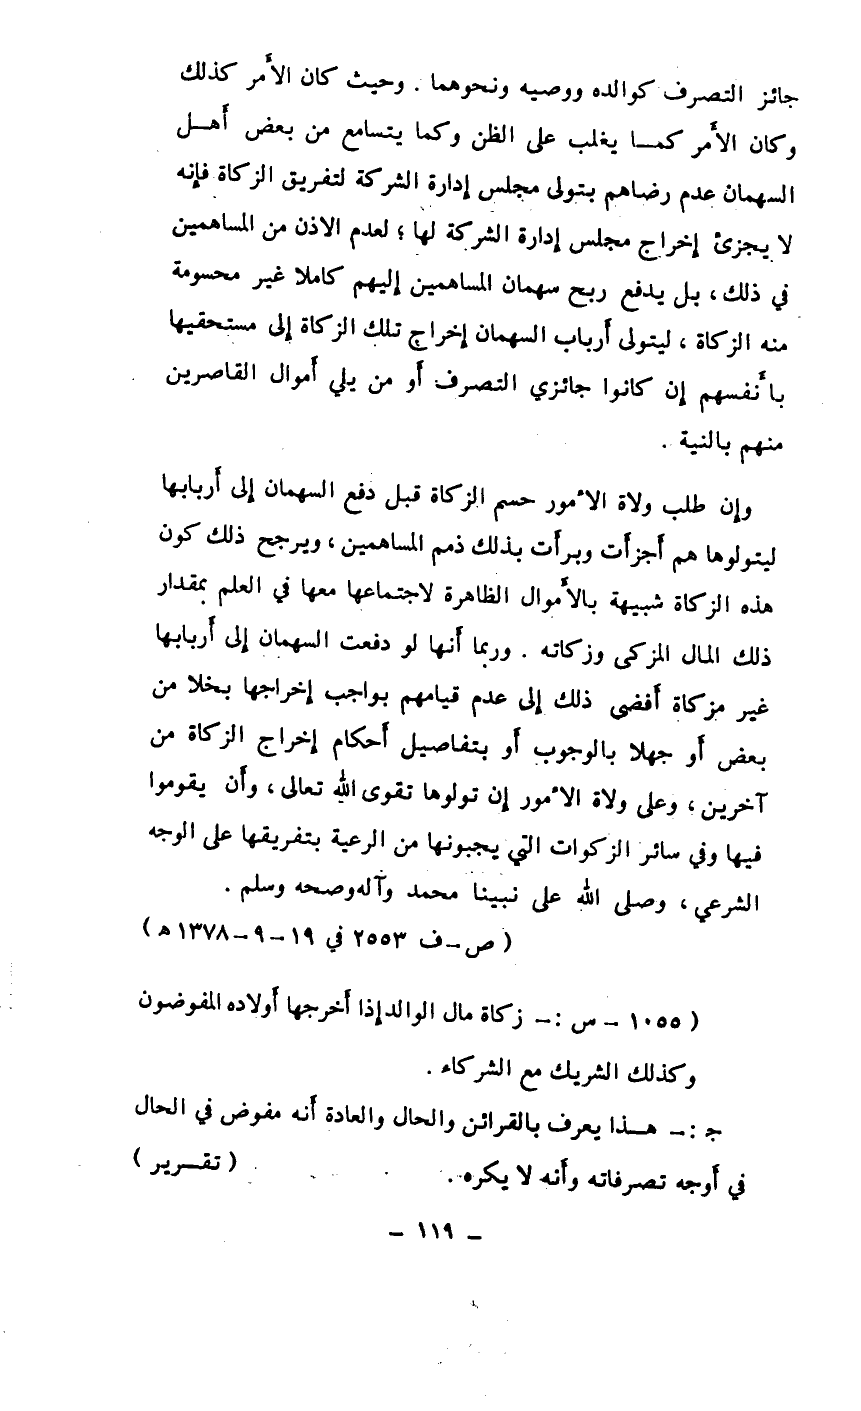 جائز التصرف كوالده ووصيه ونحوهما . وحيث كان الأمر كذلك
وكان الأمر كما يغلب على الظن وكما يتسامع من بعض أهل
السهمان عدم رضاهم بتولى مجلس إدارة الشركة لتفريق الزكاة فإنه
لا يجزئ إخراج مجلس إدارة الشركة لها ؛ لعدم الاذن من المساهمين
في ذلك ، بل يدفع ربح سهمان المساهمين إليهم كاملا غير محسومة
منه الزكاة ، ليتولى أرباب السهمان إخراج تلك الزكاة إلى مستحقيها
بأنفسهم إن كانوا جائزي التصرف أو من يلي أموال القاصرين
منهم بالنية .
وإن طلب ولاة الأمور حسم الزكاة قبل دفع السهمان إلى أربابها
ليتولوها هم أجزأت وبرأت بذلك ذمم المساهمين ، ويرجح ذلك كون
هذه الزكاة شبيهة بالأموال الظاهرة لاجتماعها معها في العلم بمقدار
ذلك المال المزكى وزكاته . وربما أنها لو دفعت السهمان إلى أربابها
غير مزكاة أفضى ذلك إلى عدم قيامهم بواجب إخراجها بخلا من
بعض أو جهلا بالوجوب أو بتفاصيل أحكام إخراج الزكاة من
آخرين ، وعلى ولاة الأمور إن تولوها تقوى الله تعالى ، وأن يقوموا
فيها وفي سائر الزكوات التي يجبونها من الرعية بتفريقها على الوجه
الشرعي ، وصلى الله على نبينا محمد وآله وصحه وسلم .
( ص-ف ٢٥٥٣ في ١٩-٩-١٣٧٨ ه )
( ١٠٥٥ - س :- زكاة مال الوالد إذا أخرجها أولاده المفوضون
وكذلك الشريك مع الشركاء .
ج :- هذا يعرف بالقرائن والحال والعادة أنه مفوض في الحال
في أوجه تصرفاته وأنه لا يكره . ( تقرير )
- ١١٩ -